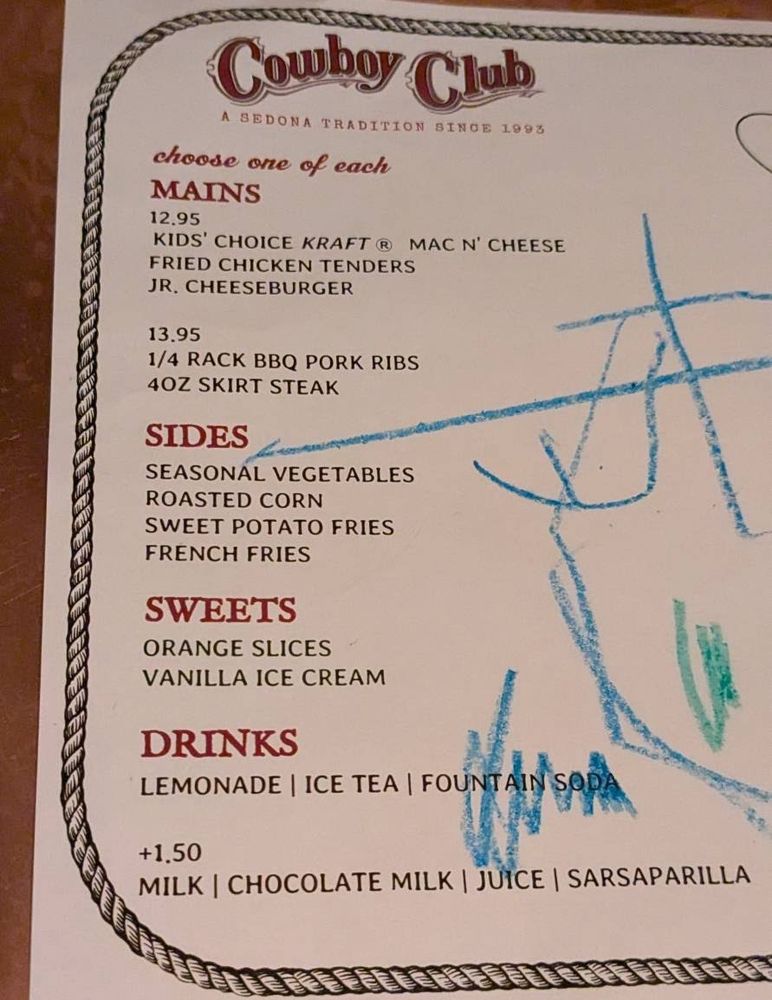 Cowboy Club
A SEDONA TRADITION SINCE 1993
choose one of each
MAINS
12.95
KIDS' CHOICE KRAFT ® MAC N' CHEESE
FRIED CHICKEN TENDERS
JR. CHEESEBURGER
13.95
1/4 RACK BBQ PORK RIBS
4OZ SKIRT STEAK
SIDES
SEASONAL VEGETABLES
ROASTED CORN
SWEET POTATO FRIES
FRENCH FRIES
SWEETS
ORANGE SLICES
VANILLA ICE CREAM
DRINKS
LEMONADE | ICE TEA | FOUNTAIN SODA
+1.50
MILK | CHOCOLATE MILK | JUICE | SARSAPARILLA